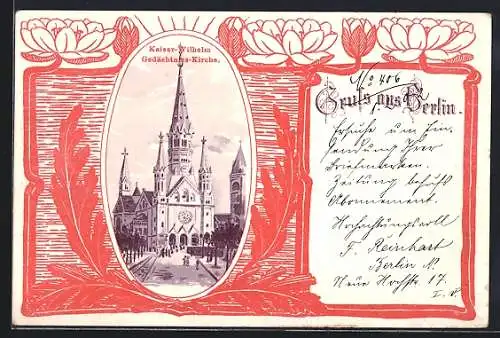 Kaiser-Wilhelm
Gedächtniss-Kirche.
No 406
Gruss aus Berlin.
Ersuche um Ein-
sendung Ihrer
Briefmarken-
Zeitung behufs
Abonnement.
Hochachtungsvoll
F. Reinhart
Berlin N.
Neue Hochstr 17.